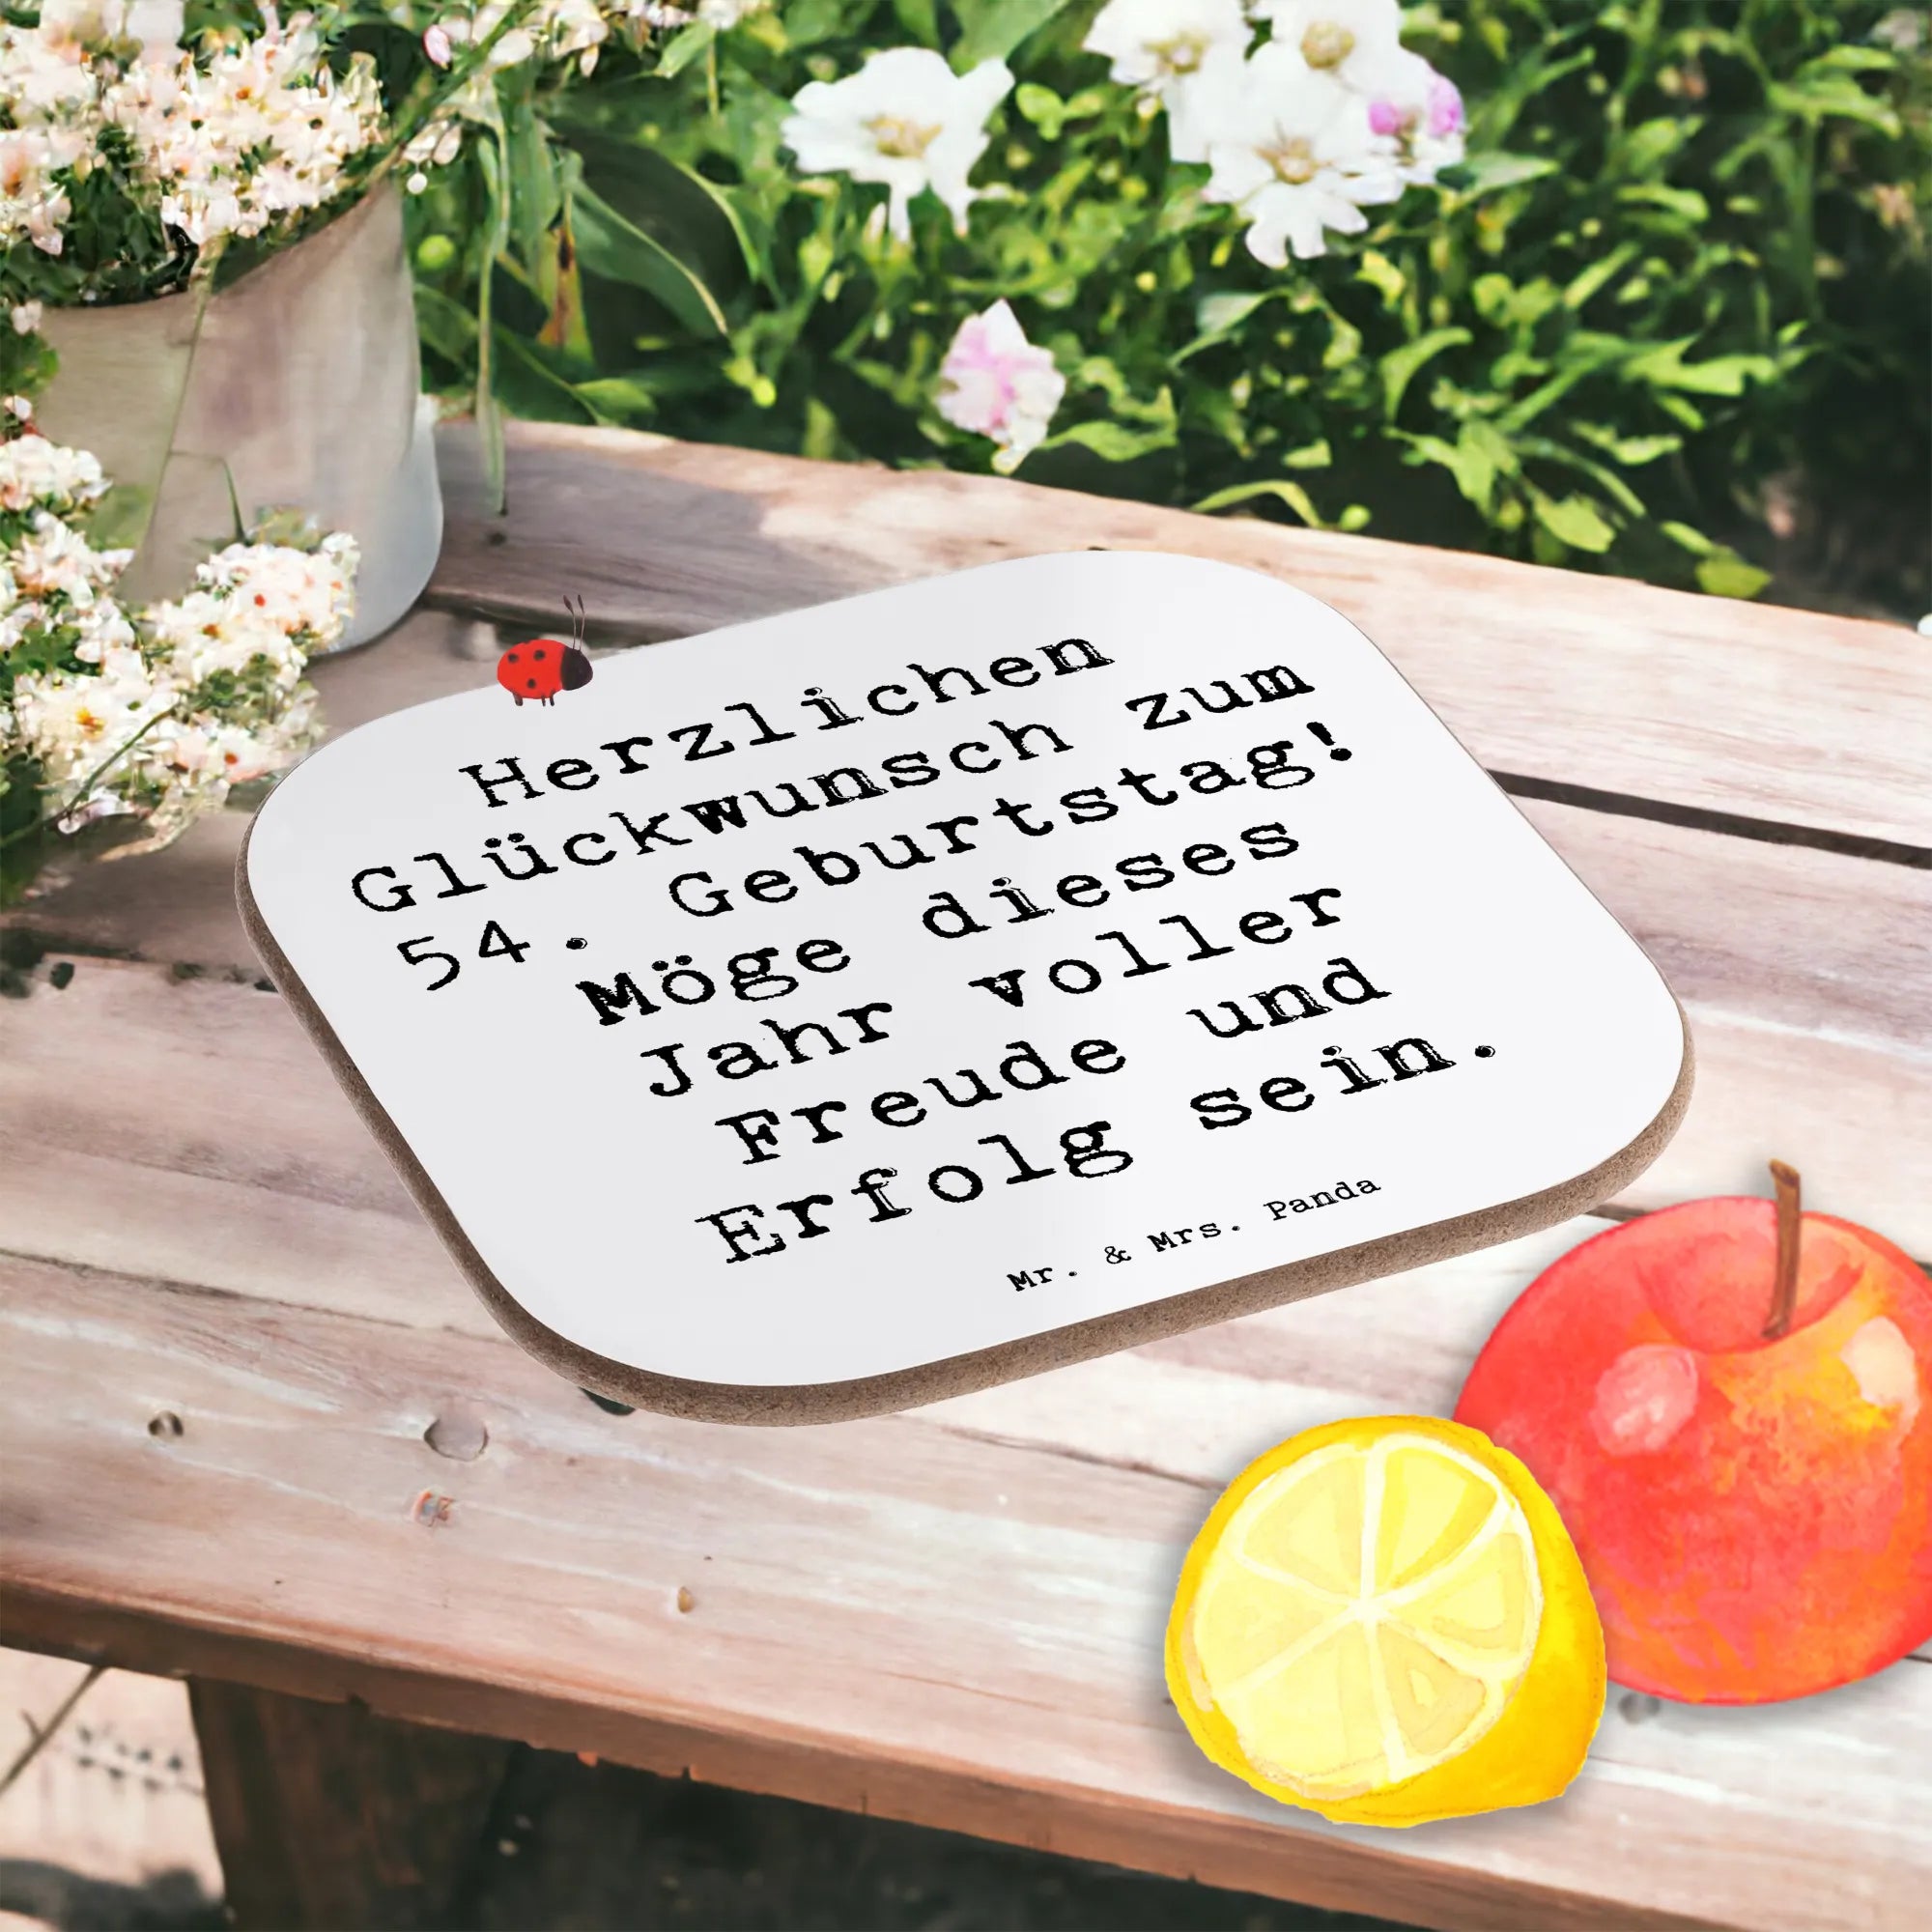 Herzlichen
Glückwunsch zum
54. Geburtstag!
Möge dieses
Jahr voller
Freude und
Erfolg sein.
Mr. & Mrs. Panda